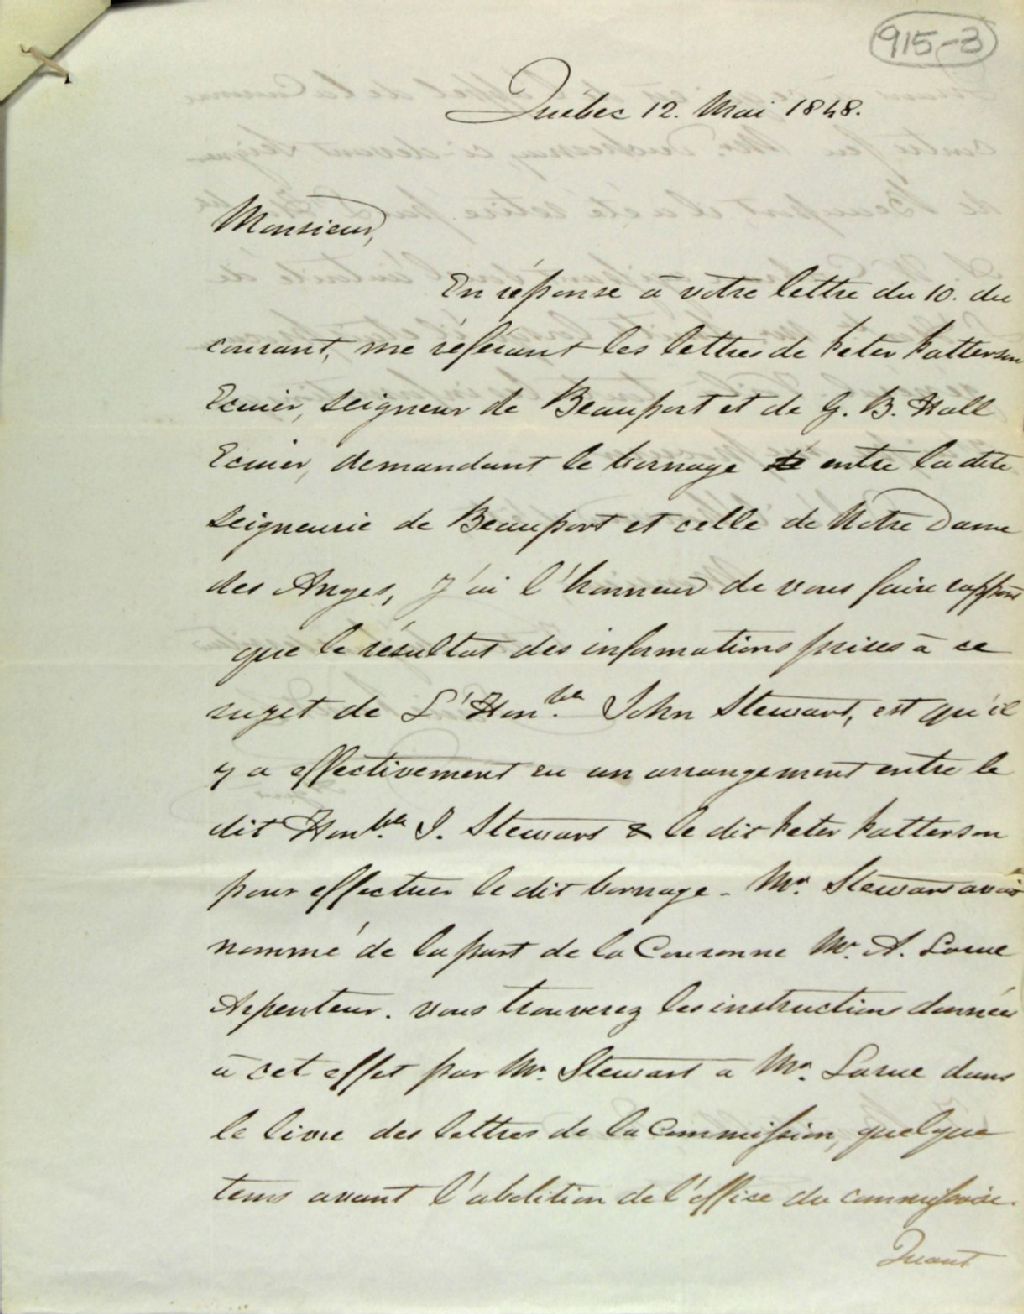 915-3
Quebec 12. Mai 1848.
Monsieur,
En réponse à votre lettre du 10. du
courant, me référant les lettres de Peter Patterson
Ecuier, Seigneur de Beauport et de G. B. Hall
Ecuier, demandant le bornage entre la dite
Seigneurie de Beauport et celle de Notre Dame
des Anges, J'ai l'honneur de vous faire rapport
que le résultat des informations prises à ce
sujet de L'Honble. John Stewart, est qu'il
y a effectivement eu un arrangement entre le
dit Honble. J. Stewart & le dit Peter Patterson
pour effectuer le dit bornage - Mr. Stewart avait
nommé de la part de la Couronne Mr. A. Larue
Arpenteur. vous trouverez les instructions données
à cet effet par Mr. Stewart a Mr. Larue dans
le livre des lettres de la Commission, quelque
tems avant l'abolition de l'office du commissaire.
Quant